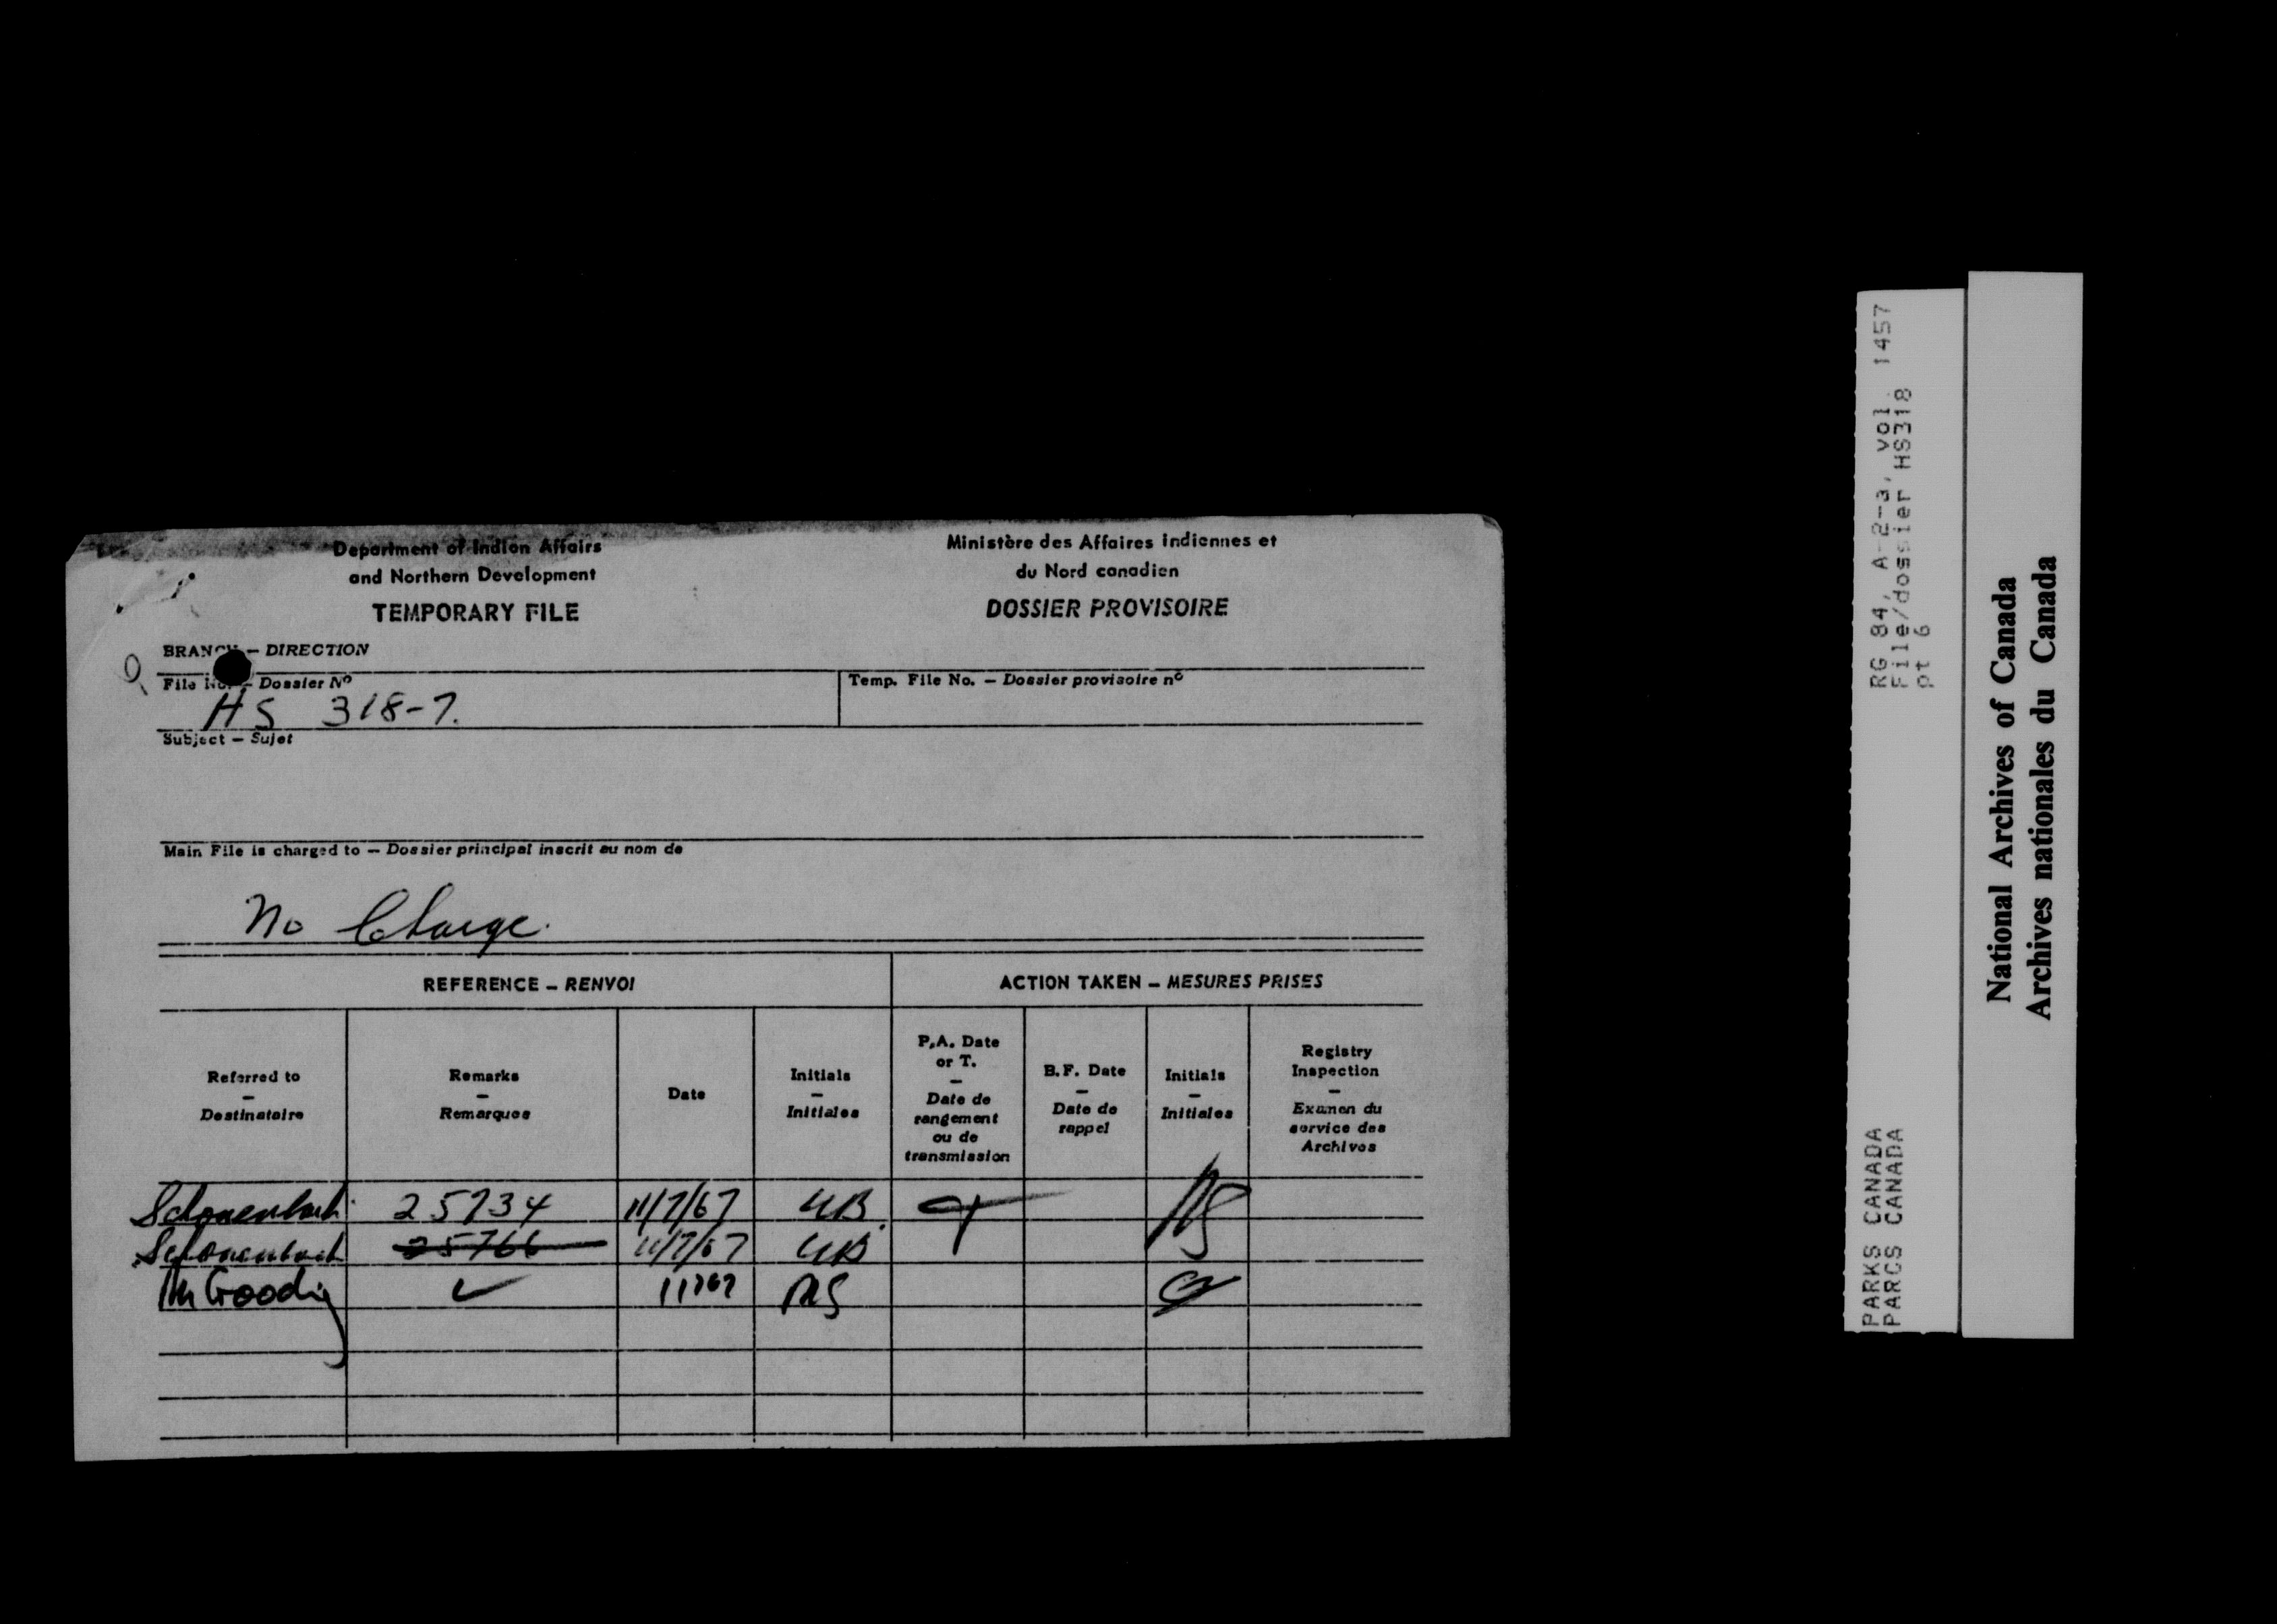 Department of Indian Affairs
and Northern Development
TEMPORARY FILE
Ministère des Affaires indiennes et
du Nord canadien
DOSSIER PROVISOIRE
BRANCH – DIRECTION
File No. – Dossier Nº
HS 318-7.
Temp. File No. – Dossier provisoire nº
Subject – Sujet
Main File is charged to – Dossier principal inscrit au nom de
No Charge.
REFERENCE – RENVOI
ACTION TAKEN – MESURES PRISES
Referred to
–
Destinataire
Remarks
–
Remarques
Date
Initials
–
Initiales
P.A. Date
or T.
–
Date de
rangement
ou de
transmission
B.F. Date
–
Date de
rappel
Initials
–
Initiales
Registry
Inspection
–
Examen du
service des
Archives
Schonenbach 25734 11/7/67
Schonenbach 25766 11/7/67
✓ 11767
RG 84, A-2-a, vol. 1457
File/dossier HS318
pt 6
PARKS CANADA
PARCS CANADA
National Archives of Canada
Archives nationales du Canada